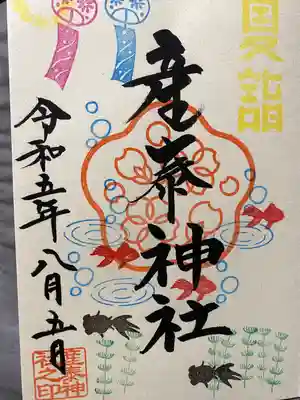 奉拝
産泰神社
令和五年八月五日
産泰神
社之印